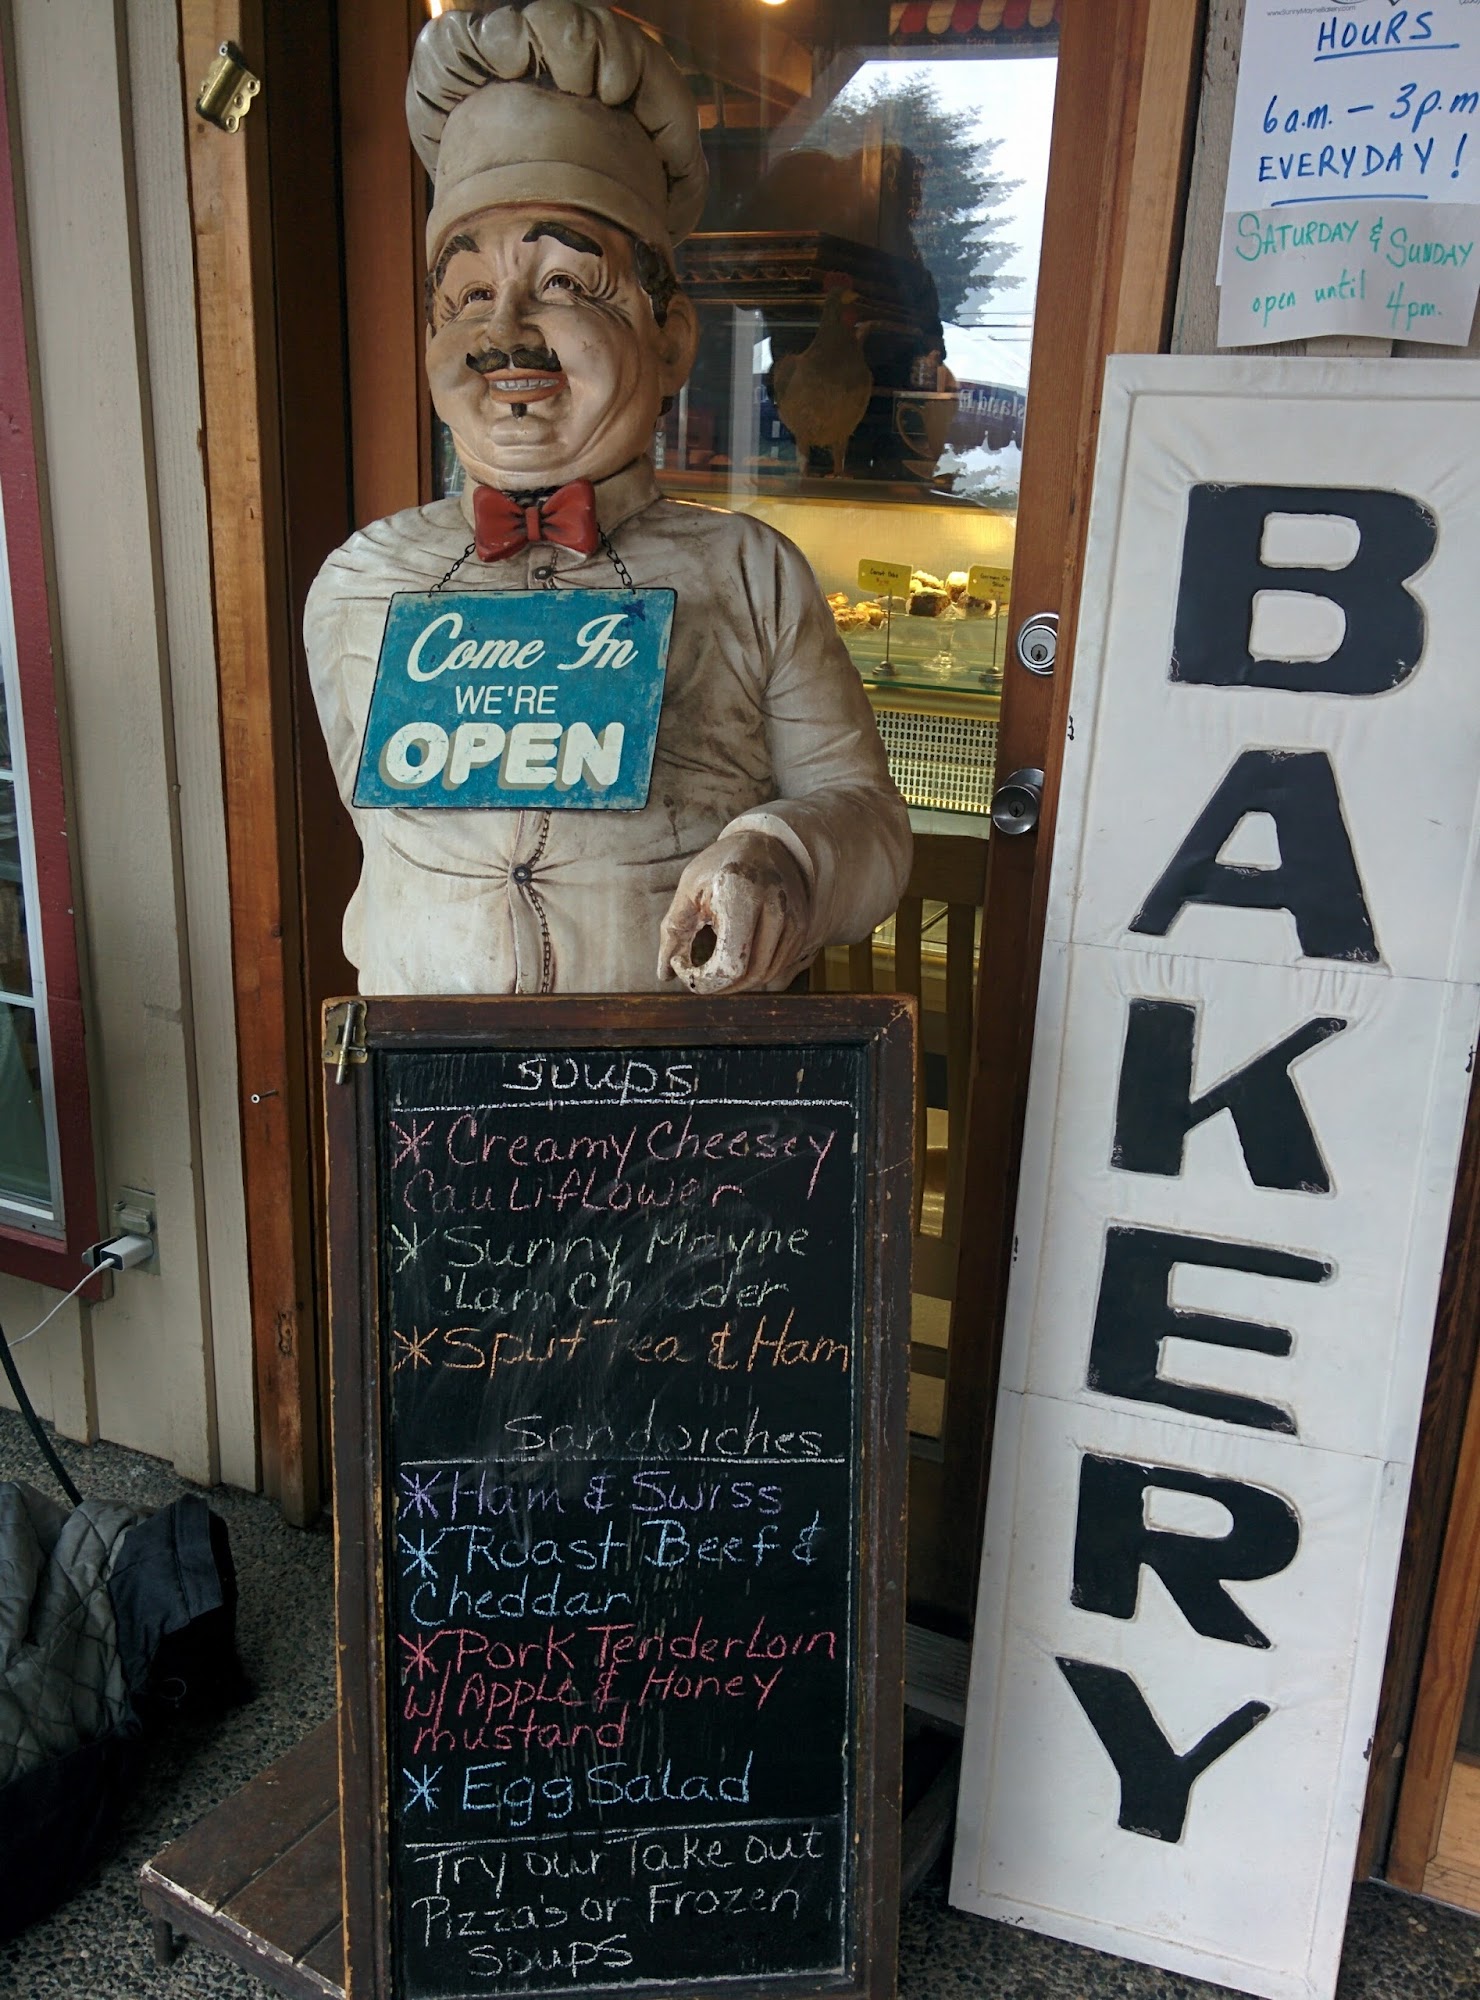 HOURS
6 a.m. – 3 p.m
EVERYDAY!
SATURDAY & SUNDAY
open until 4pm.
Come In
WE'RE
OPEN
BAKERY
Soups
* Creamy Cheesey
Cauliflower
* Sunny Mayne
'Lam Ch wder
* Split Pea & Ham
Sandwiches
* Ham & Swiss
* Roast Beef &
Cheddar
* Pork Tenderloin
w/ Apple & Honey
mustand
* Egg Salad
Try our Take out
Pizza's or Frozen
soups